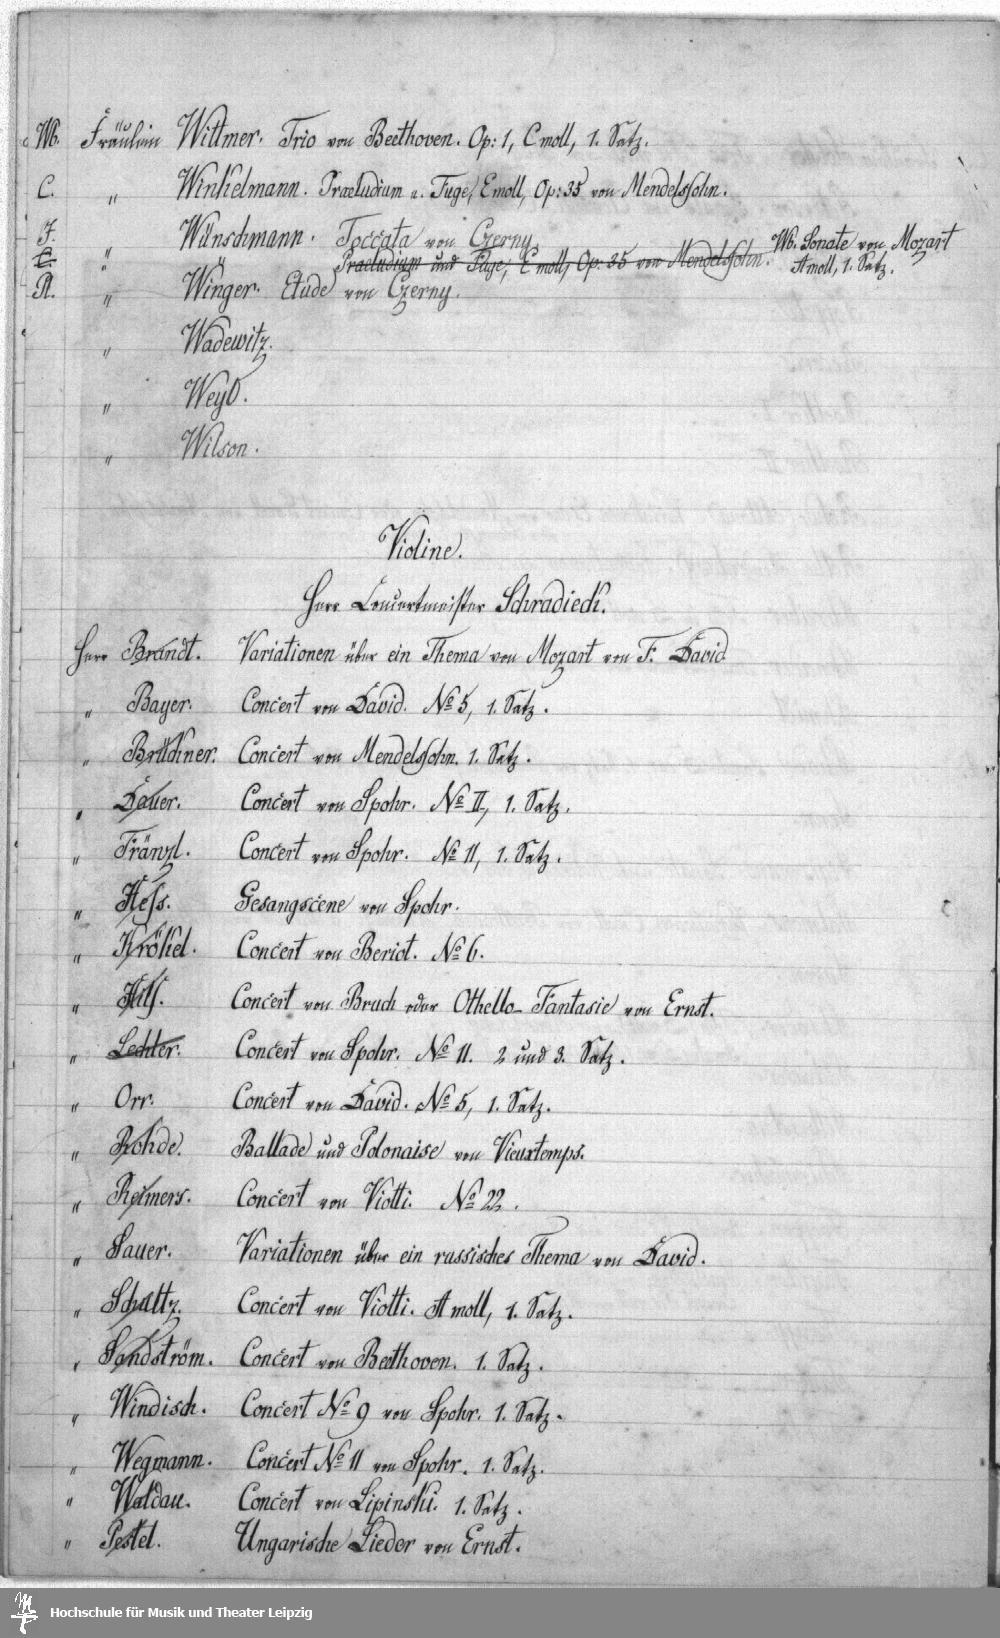 Wb. Fräulein Wittmer. Trio von Beethoven. Op: 1, C moll, 1. Satz.
C. " Winkelmann. Præludium u. Fuge, E moll, Op: 35 von Mendelssohn.
F. " Wünschmann. Toccata von Czerny. Wb. Sonate von Mozart
C. " " Praeludium und Fuge, E moll, Op: 35 von Mendelssohn. A moll, 1. Satz.
A. " Winger. Etude von Czerny.
" Wadewitz.
" Weyl.
" Wilson.
Violine.
Herr Concertmeister Schradieck.
Herr Brandt. Variationen über ein Thema von Mozart von F. David
" Bayer. Concert von David. No 5, 1. Satz.
" Brückner. Concert von Mendelssohn. 1. Satz.
" Dauer. Concert von Spohr. No II, 1. Satz.
" Fränzl. Concert von Spohr. No 11, 1. Satz.
" Hess. Gesangscene von Spohr.
" Krökel. Concert von Beriot. No 6.
" Hilf. Concert von Bruch oder Othello-Fantasie von Ernst.
" Lechter. Concert von Spohr. No 11. 2 und 3. Satz.
" Orr. Concert von David. No 5, 1. Satz.
" Rohde. Ballade und Polonaise von Vieuxtemps.
" Reimers. Concert von Viotti. No 22.
" Sauer. Variationen über ein russisches Thema von David.
" Schultz. Concert von Viotti. A moll, 1. Satz.
" Sandström. Concert von Beethoven. 1. Satz.
" Windisch. Concert No 9 von Spohr. 1. Satz.
" Wegmann. Concert No 11 von Spohr. 1. Satz.
" Waldau. Concert von Lipinski. 1. Satz.
" Pestel. Ungarische Lieder von Ernst.
Hochschule für Musik und Theater Leipzig